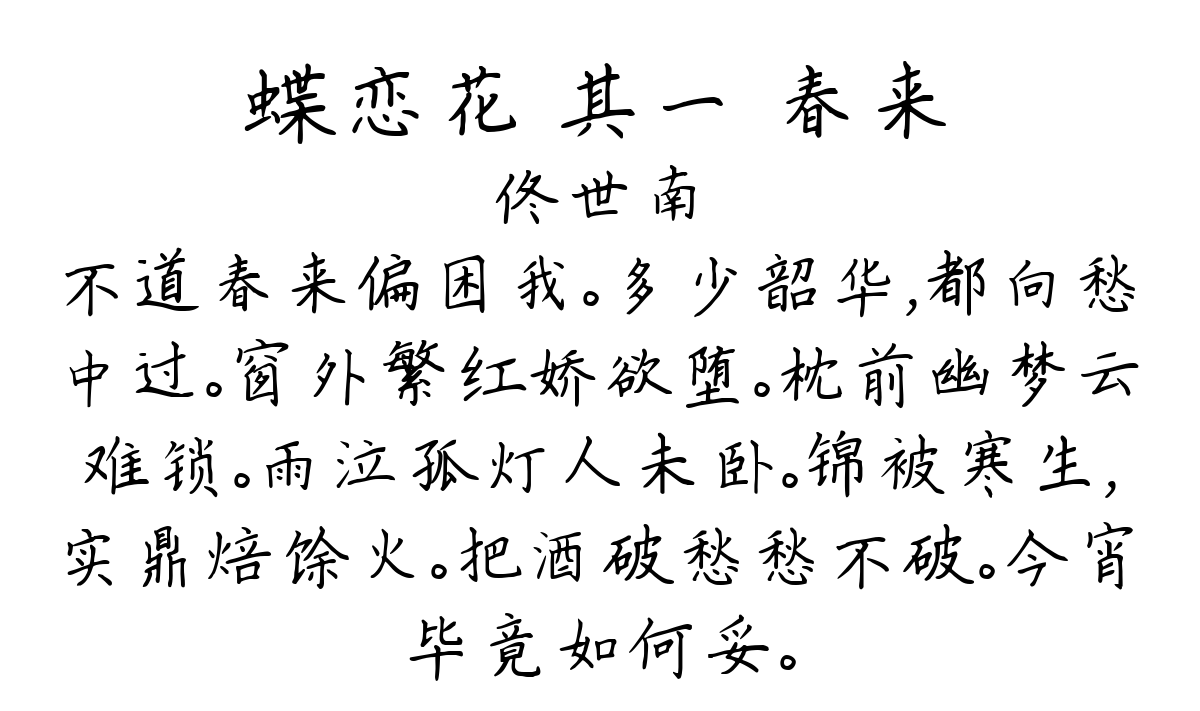 蝶恋花 其一 春来
佟世南
不道春来偏困我。多少韶华,都向愁
中过。窗外繁红娇欲堕。枕前幽梦云
难锁。雨泣孤灯人未卧。锦被寒生,
实鼎焙馀火。把酒破愁愁不破。今宵
毕竟如何妥。